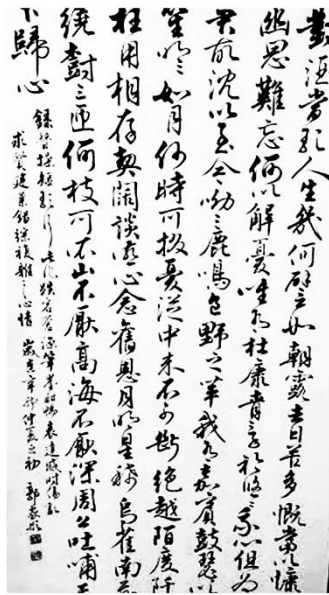 對酒當歌人生幾何譬如朝露去日苦多慨當以慷
幽思難忘何以解憂唯有杜康青青子衿悠悠我心但為
君故沈吟至今呦呦鹿鳴食野之苹我有嘉賓鼓瑟吹
笙明明如月何時可掇憂從中來不可斷絕越陌度阡
枉用相存契闊談讌心念舊恩月明星稀烏雀南飛
繞樹三匝何枝可依山不厭高海不厭深周公吐哺天
下歸心
錄曹操短歌行蒼涼筆酣暢表達感時傷亂
求賢建業錯綜複雜之心情 歲在辛卯仲夏之初 郭